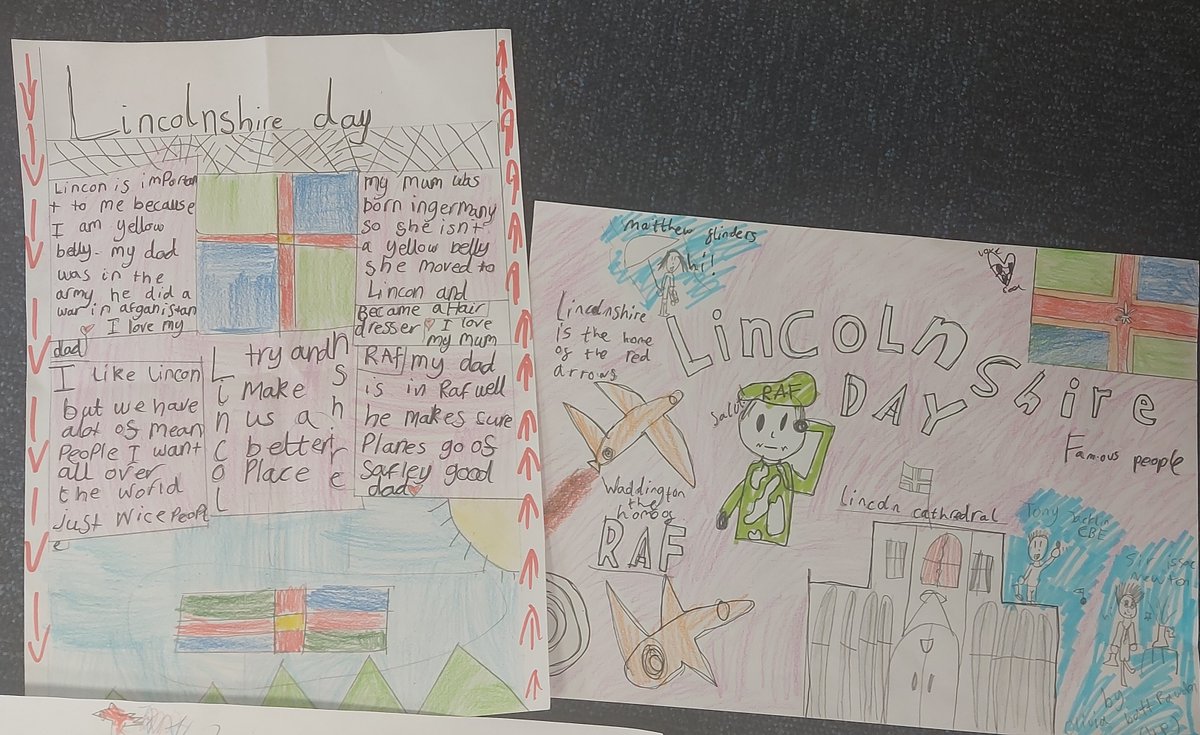 Lincolnshire day
Lincon is importan
t to me because
I am yellow
belly. my dad
was in the
army he did a
war in afganistan
I love my
dad
my mum was
born in germany
so she isn't
a yellow belly
she moved to
Lincon and
Became a Hair
dresser I love
my mum
I like Lincon
but we have
alot of mean
People I want
all over
the world
just Nice PeoPl
e
Lincol
nshire
try and
Make
us a
better
Place
RAF my dad
is in Raf well
he makes sure
Planes go of
safley good
dad
matthew flinders
hi!
Lincolnshire
is the home
of the red
arrows
LincoLnshire
DAY
Salut
RAF
Famous people
Waddington
the
home of
RAF
Lincoln cathedral
Tony Jacklin
CBE
Sir issac
newton
hi
by